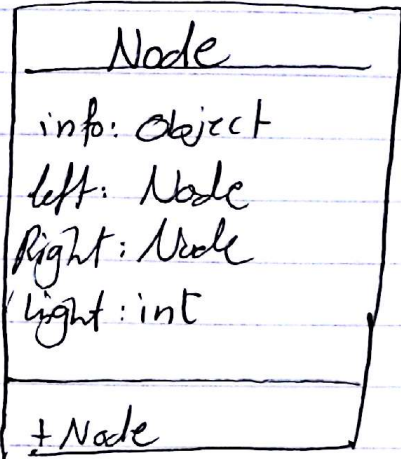 Node
info: Object
left: Node
Right: Node
: int
+ Node